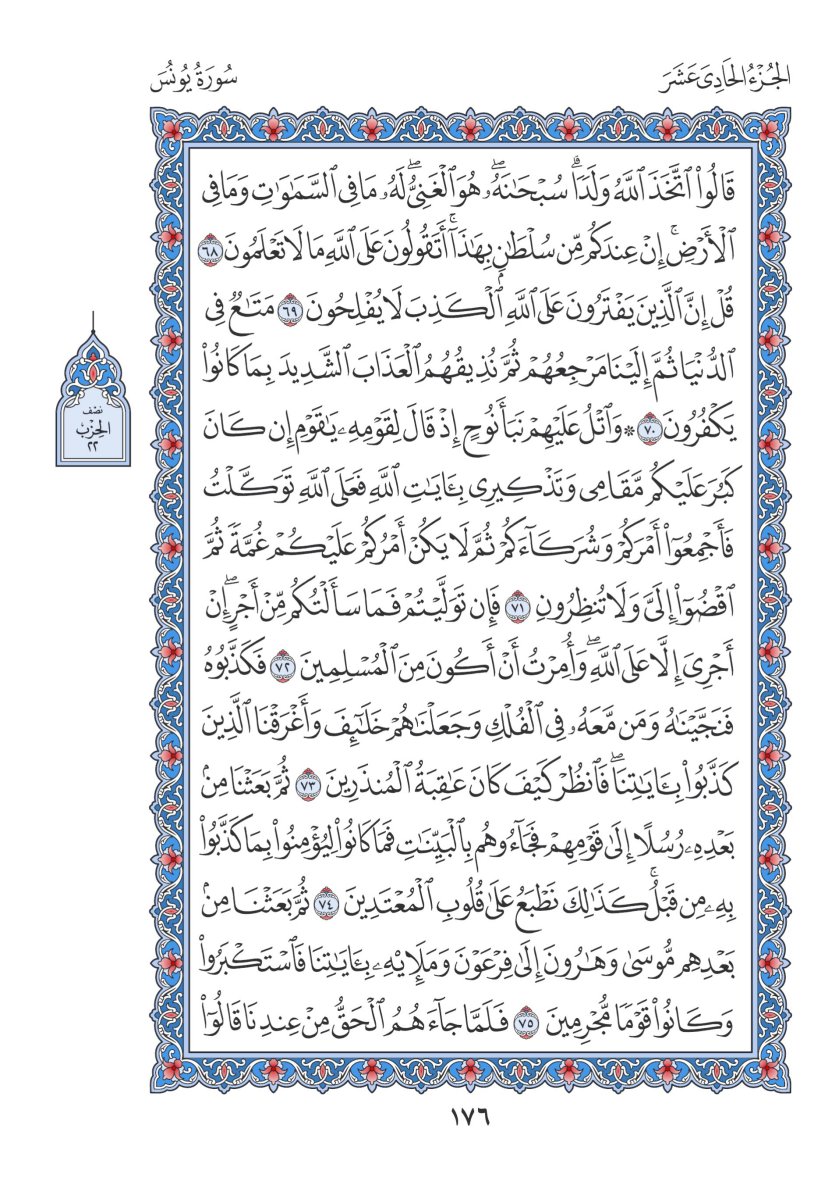 الجُزْءُ الحَادِىَ عَشَرَ
سُورَةُ يُونُسَ
قَالُوا۟ ٱتَّخَذَ ٱللَّهُ وَلَدًاۗ سُبْحَـٰنَهُۥۖ هُوَ ٱلْغَنِىُّۖ لَهُۥ مَا فِى ٱلسَّمَـٰوَٰتِ وَمَا فِى
ٱلْأَرْضِۚ إِنْ عِندَكُم مِّن سُلْطَـٰنٍۭ بِهَـٰذَآۚ أَتَقُولُونَ عَلَى ٱللَّهِ مَا لَا تَعْلَمُونَ ٦٨
قُلْ إِنَّ ٱلَّذِينَ يَفْتَرُونَ عَلَى ٱللَّهِ ٱلْكَذِبَ لَا يُفْلِحُونَ ٦٩ مَتَـٰعٌ فِى
ٱلدُّنْيَا ثُمَّ إِلَيْنَا مَرْجِعُهُمْ ثُمَّ نُذِيقُهُمُ ٱلْعَذَابَ ٱلشَّدِيدَ بِمَا كَانُوا۟
يَكْفُرُونَ ٧٠ ۞ وَٱتْلُ عَلَيْهِمْ نَبَأَ نُوحٍ إِذْ قَالَ لِقَوْمِهِۦ يَـٰقَوْمِ إِن كَانَ
كَبُرَ عَلَيْكُم مَّقَامِى وَتَذْكِيرِى بِـَٔايَـٰتِ ٱللَّهِ فَعَلَى ٱللَّهِ تَوَكَّلْتُ
فَأَجْمِعُوٓا۟ أَمْرَكُمْ وَشُرَكَآءَكُمْ ثُمَّ لَا يَكُنْ أَمْرُكُمْ عَلَيْكُمْ غُمَّةً ثُمَّ
ٱقْضُوٓا۟ إِلَىَّ وَلَا تُنظِرُونِ ٧١ فَإِن تَوَلَّيْتُمْ فَمَا سَأَلْتُكُم مِّنْ أَجْرٍۖ إِنْ
أَجْرِىَ إِلَّا عَلَى ٱللَّهِۖ وَأُمِرْتُ أَنْ أَكُونَ مِنَ ٱلْمُسْلِمِينَ ٧٢ فَكَذَّبُوهُ
فَنَجَّيْنَـٰهُ وَمَن مَّعَهُۥ فِى ٱلْفُلْكِ وَجَعَلْنَـٰهُمْ خَلَـٰٓئِفَ وَأَغْرَقْنَا ٱلَّذِينَ
كَذَّبُوا۟ بِـَٔايَـٰتِنَاۖ فَٱنظُرْ كَيْفَ كَانَ عَـٰقِبَةُ ٱلْمُنذَرِينَ ٧٣ ثُمَّ بَعَثْنَا مِنۢ
بَعْدِهِۦ رُسُلًا إِلَىٰ قَوْمِهِمْ فَجَآءُوهُم بِٱلْبَيِّنَـٰتِ فَمَا كَانُوا۟ لِيُؤْمِنُوا۟ بِمَا كَذَّبُوا۟
بِهِۦ مِن قَبْلُۚ كَذَٰلِكَ نَطْبَعُ عَلَىٰ قُلُوبِ ٱلْمُعْتَدِينَ ٧٤ ثُمَّ بَعَثْنَا مِنۢ
بَعْدِهِم مُّوسَىٰ وَهَـٰرُونَ إِلَىٰ فِرْعَوْنَ وَمَلَإِي۟هِۦ بِـَٔايَـٰتِنَا فَٱسْتَكْبَرُوا۟
وَكَانُوا۟ قَوْمًا مُّجْرِمِينَ ٧٥ فَلَمَّا جَآءَهُمُ ٱلْحَقُّ مِنْ عِندِنَا قَالُوٓا۟
نصْف
الحِزْبِ
٢٢
١٧٦